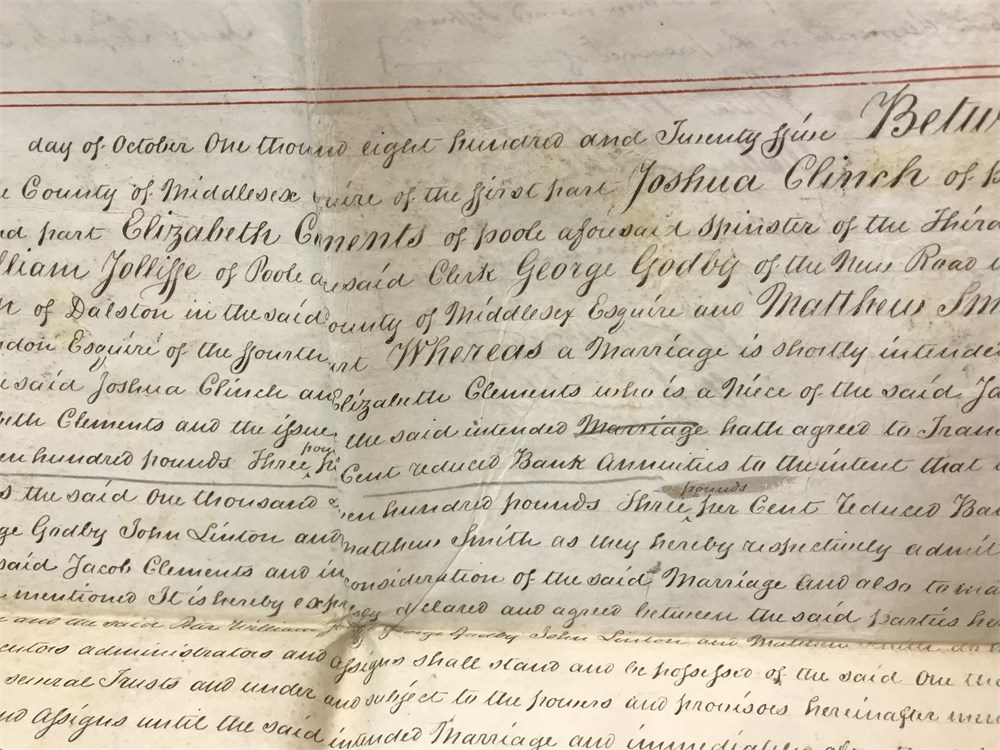 day of October One thousand eight hundred and Twenty five Betw
County of Middlesex Esquire of the first part Joshua Clinch of
part Elizabeth Clements of Poole aforesaid Spinster of the Third
lliam Jolliffe of Poole aforesaid Clerk George Godby of the New Road
of Dalston in the said County of Middlesex Esquire and Matthew Smi
ndon Esquire of the fourth part Whereas a Marriage is shortly intended
said Joshua Clinch and Elizabeth Clements who is a Niece of the said Ja
beth Clements and the issue the said intended Marriage hath agreed to Trans
en hundred pounds Three pou Cent reduced Bank Annuities to the intent that
s the said One thousand en hundred pounds Three pounds per Cent reduced Ban
ge Godby John Linton and Matthew Smith as they hereby respectively admit
said Jacob Clements and in consideration of the said Marriage and also to ma
mentioned It is hereby expressly declared and agreed between the said parties he
and the said Peter William George Godby John Linton and Matthew Smith
cutors administrators and assigns shall stand and be possessed of the said One tho
several Trusts and under and subject to the powers and provisoes hereinafter men
nd Assigns until the said intended Marriage and immediately